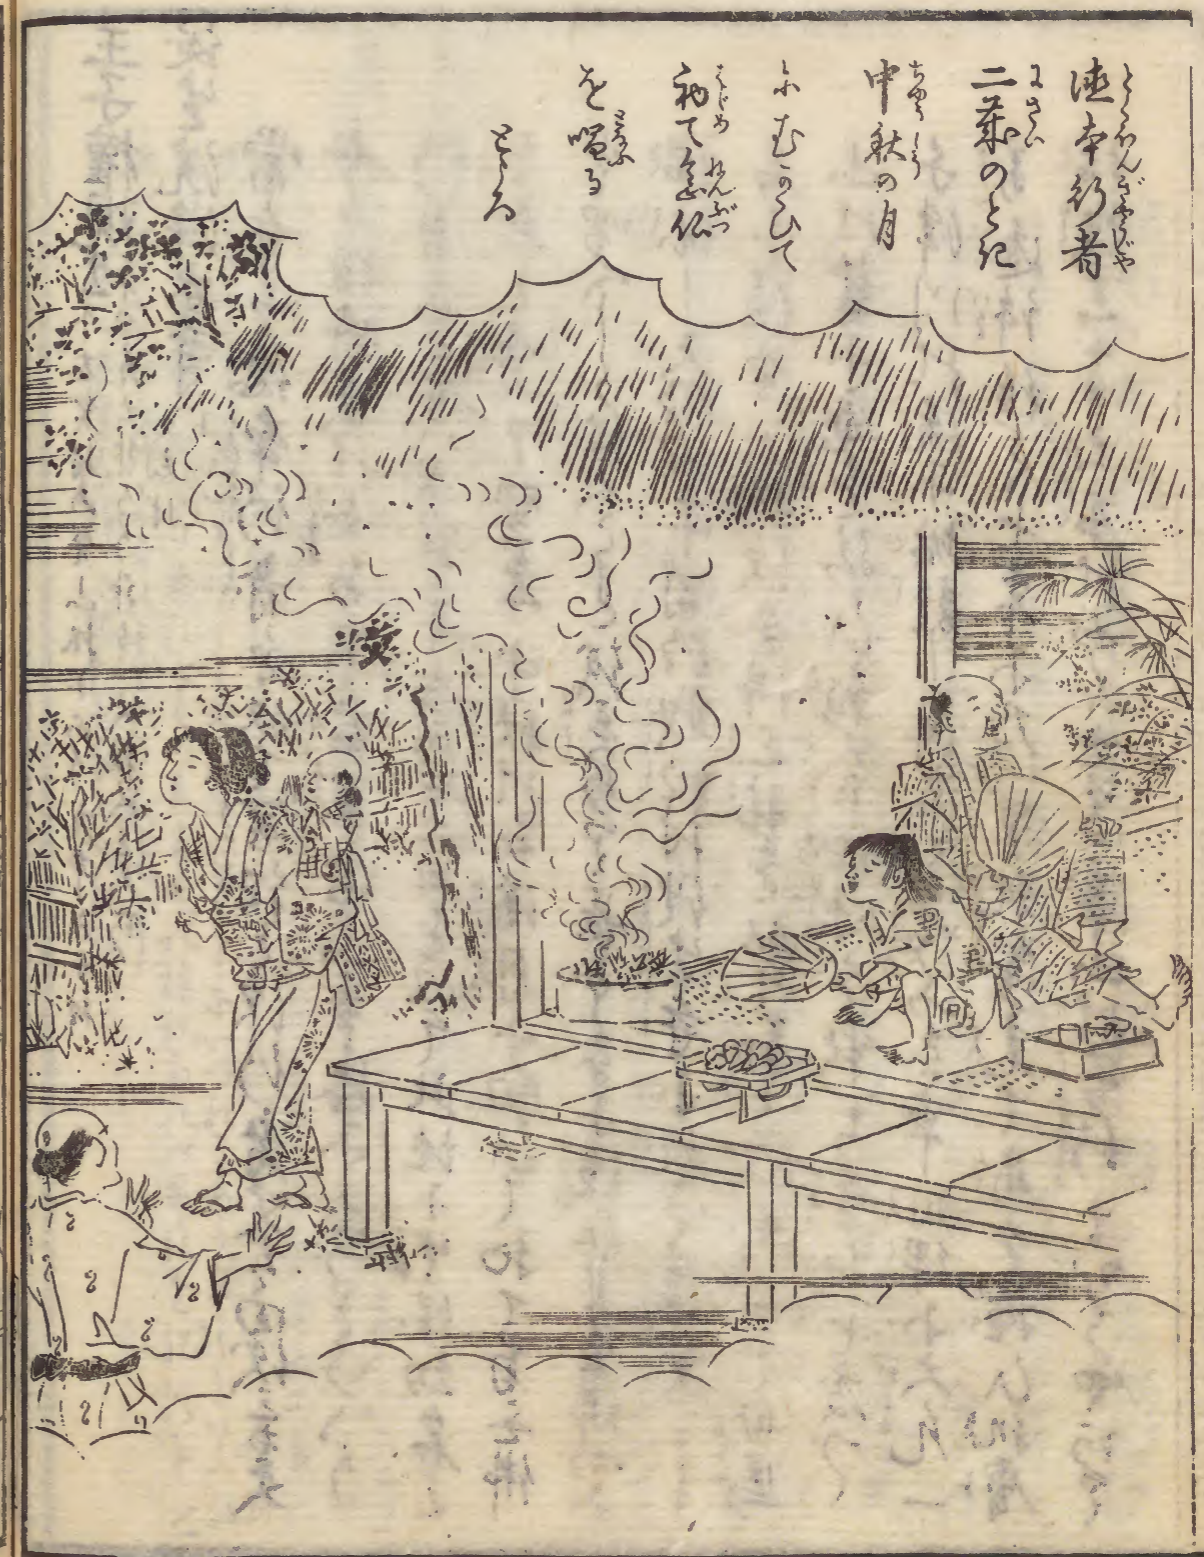 徳本行者
二歳のとき
中秋の月
にむかひて
初て念仏
を唱る
ところ